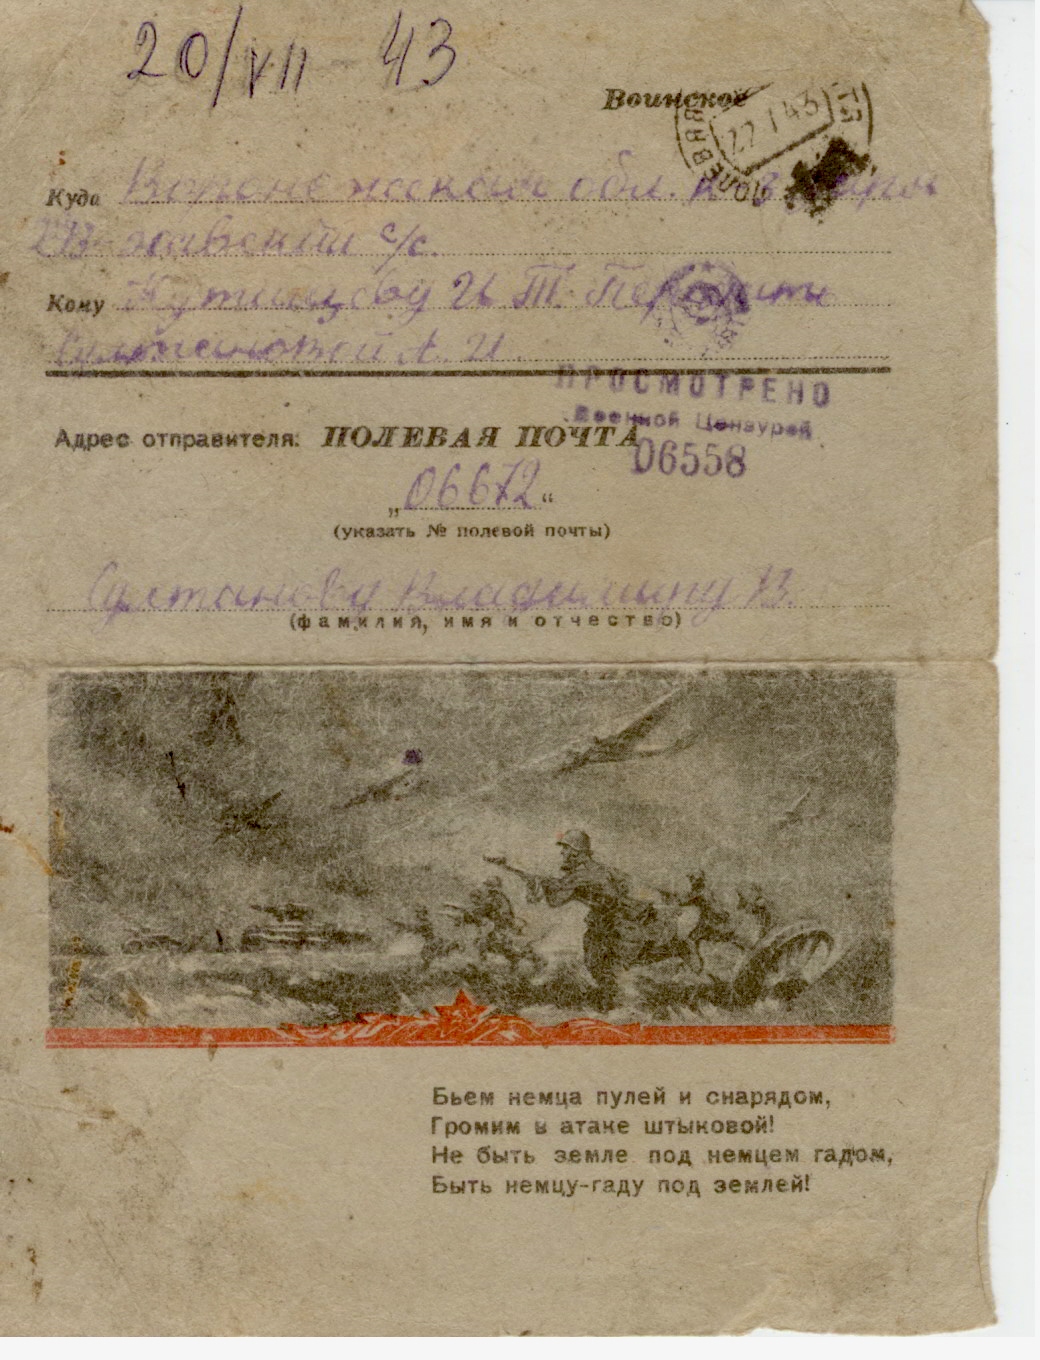 20/VII - 43
Воинское
ПОЛЕВАЯ
Куда Воронежская обл.
с/с.
Кому И. Т. Передать
А. И.
ПРОСМОТРЕНО
Военной Цензурой
06558
Адрес отправителя: ПОЛЕВАЯ ПОЧТА
„06672“
(указать № полевой почты)
Султанову Владимиру В.
(фамилия, имя и отчество)
Бьем немца пулей и снарядом,
Громим в атаке штыковой!
Не быть земле под немцем гадом,
Быть немцу-гаду под землей!